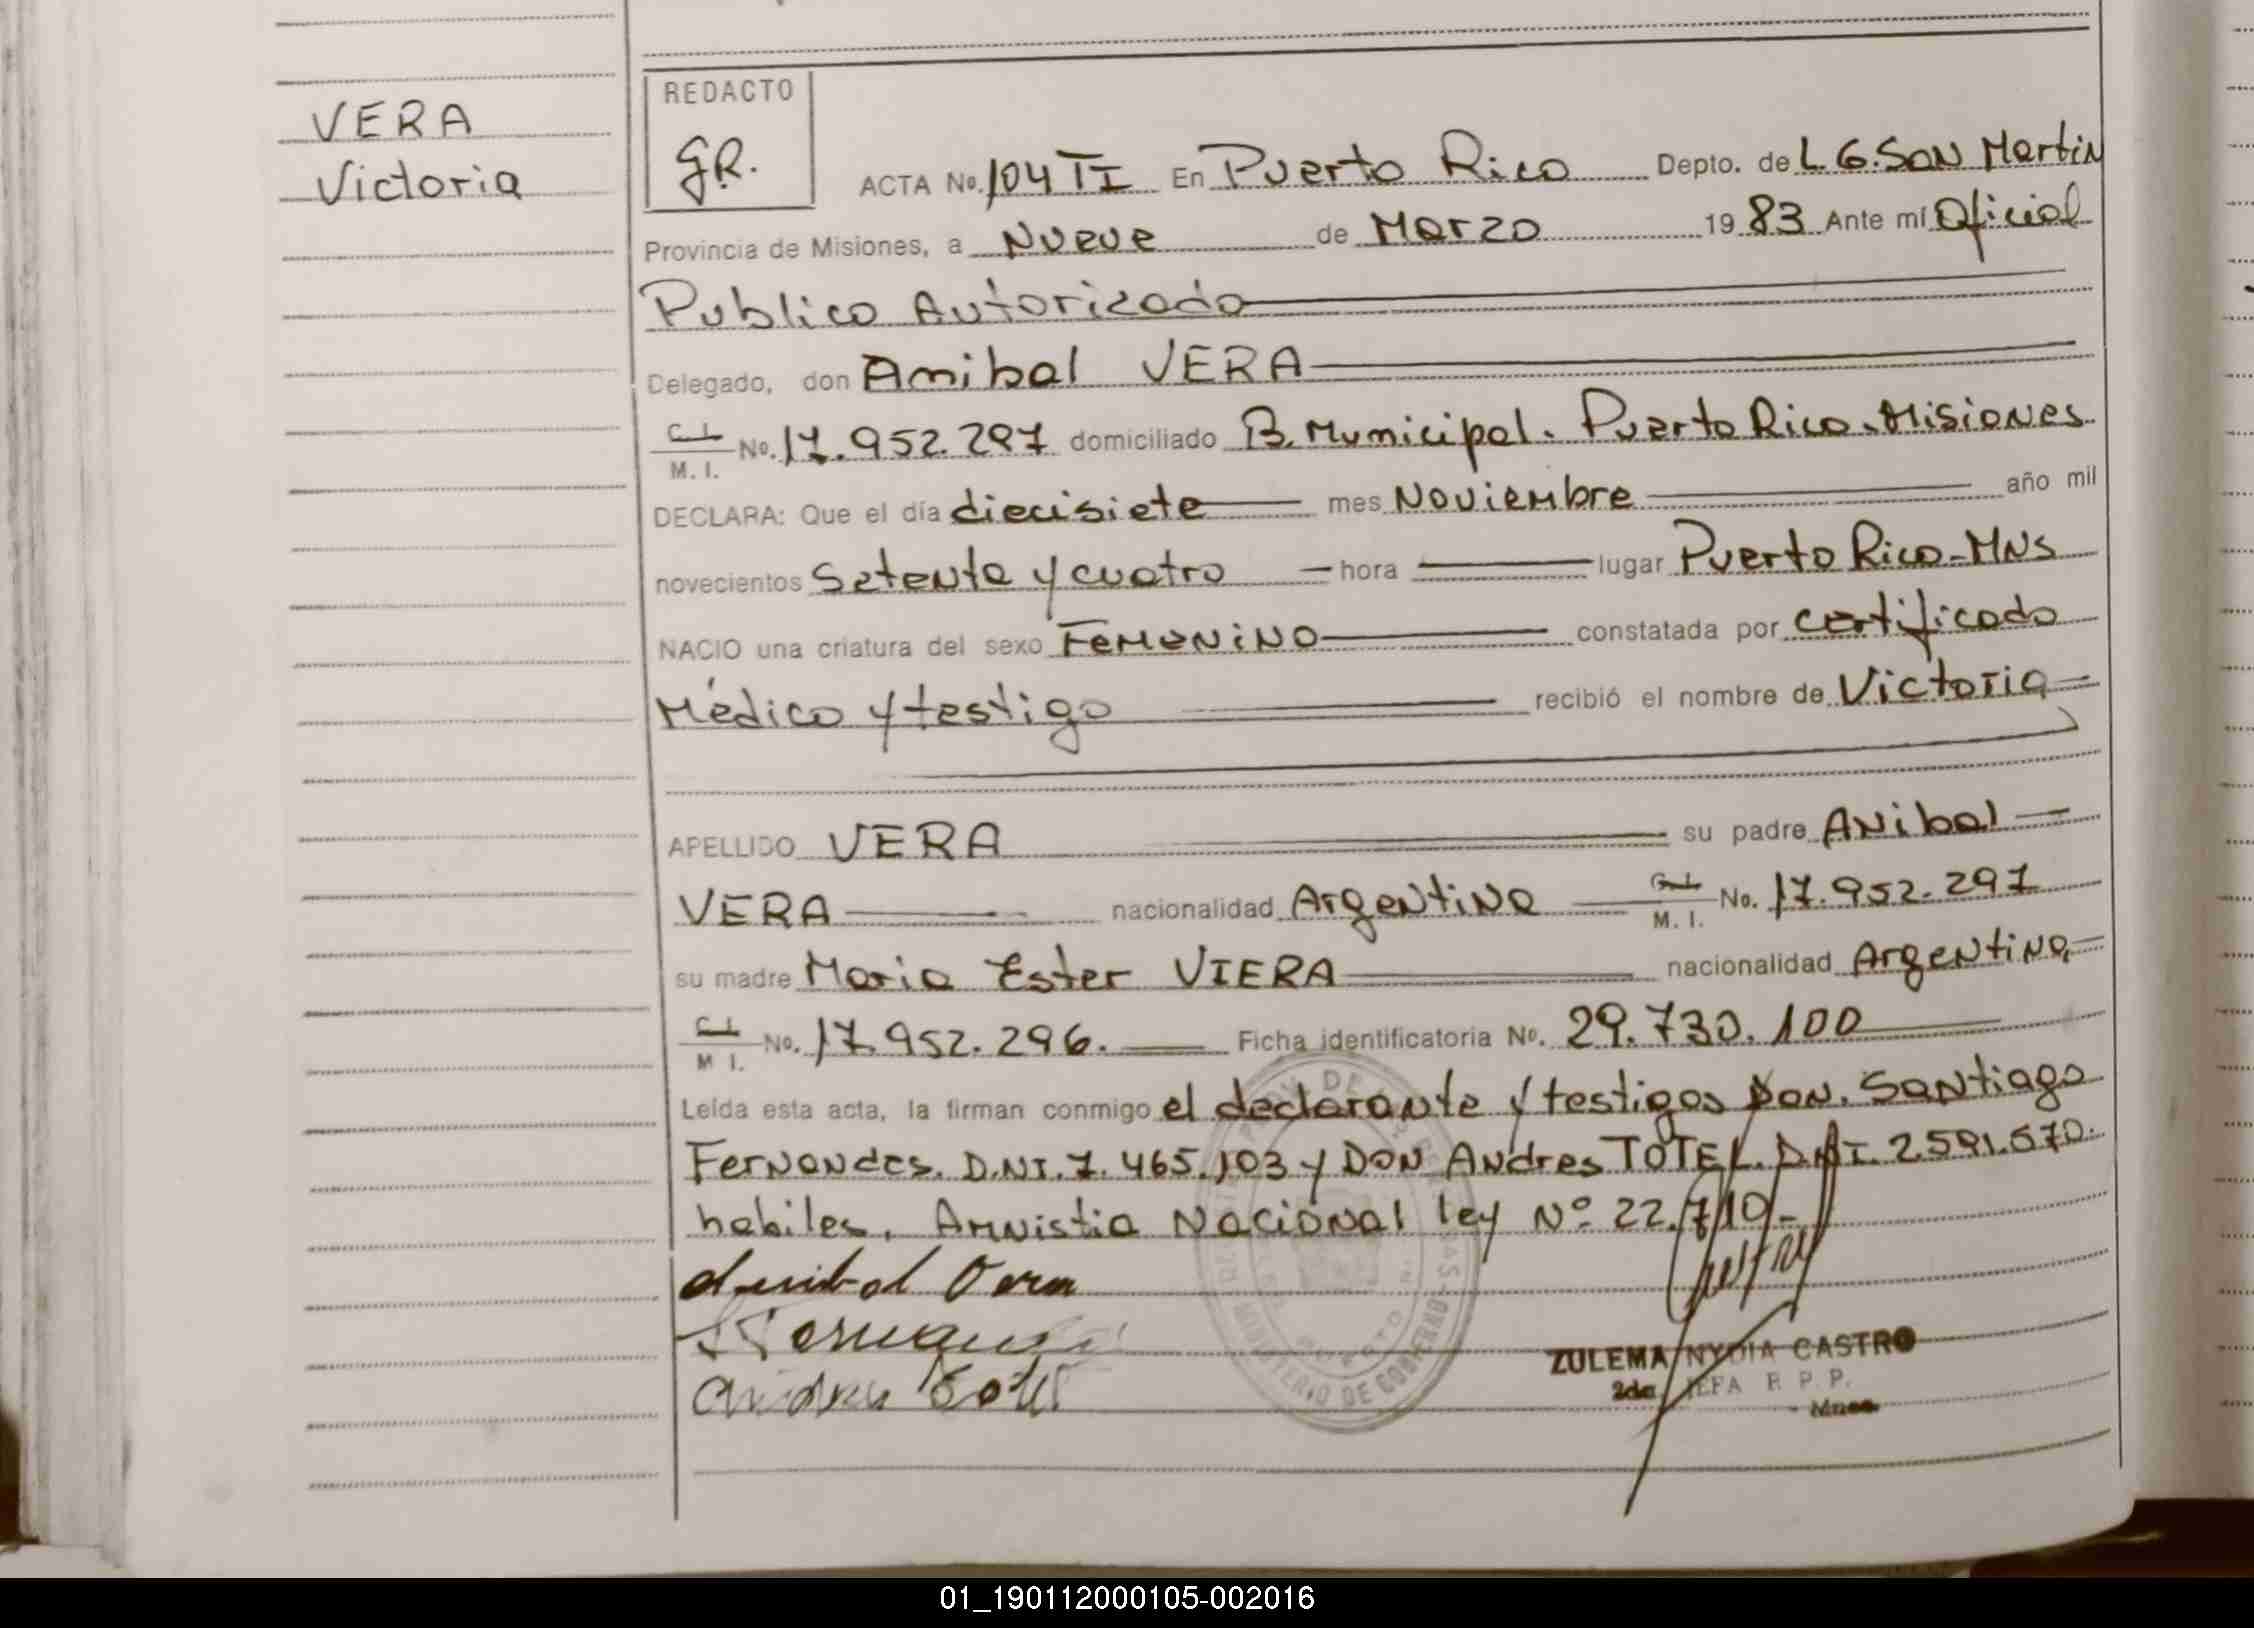 VERA
Victoria
REDACTO
G.R.
ACTA No. 104 TI En Puerto Rico Depto. de L. G. SAN Martin
Provincia de Misiones, a Nueve de Marzo 1983 Ante mí Oficial
Publico Autorizado
Delegado, don Anibal VERA
C. I. M. I. No. 17.952.297 domiciliado B. Municipal. Puerto Rico. Misiones
DECLARA: Que el día diecisiete mes Noviembre año mil
novecientos Setenta y cuatro hora lugar Puerto Rico-MNS
NACIO una criatura del sexo Femenino constatada por certificado
Médico y testigo recibió el nombre de Victoria
APELLIDO VERA su padre Anibal
VERA nacionalidad Argentina C. I. M. I. No. 17.952.297
su madre Maria Ester VIERA nacionalidad Argentina
C. I. M. I. No. 17.952.296. Ficha identificatoria No. 29.730.100
Leída esta acta, la firman conmigo el declarante y testigos Don. Santiago
Fernandes. D.NI. 7.465.103 y DON Andres TOTEL. D.N.I. 2.591.570.
habiles. Amnistia Nacional ley Nº 22.710-
Anibal Vera
ZULEMA NYDIA CASTRO
2da. JEFA R. P. P.
Mnes.
MINISTERIO DE GOBIERNO
01_190112000105-002016